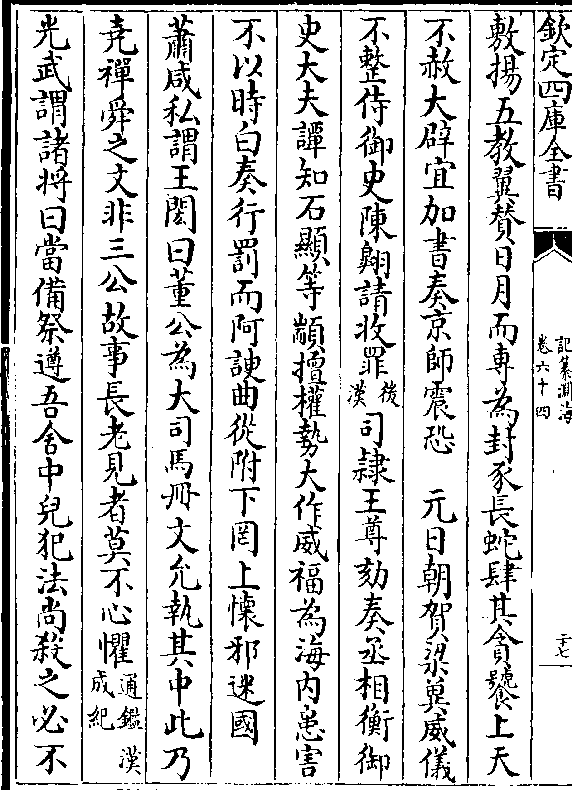 欽定四庫全書
記纂淵海
卷六十四
二十七
敷揚五教翼賛日月而專為封豕長蛇肆其貪饕上天
不赦大辟宜加書奏京師震恐　元日朝賀梁兾威儀
不整侍御史陳翺請收罪後漢司隷王尊劾奏丞相衡御
史大夫譚知石顯等顓擅權勢大作威福為海内患害
不以時白奏行罰而阿諛曲從附下罔上懐邪迷國
蕭咸私謂王閎曰董公為大司馬冊文允執其中此乃
堯禪舜之文非三公故事長老見者莫不心懼通鑑漢成紀
光武謂諸将曰當備祭遵吾舍中兒犯法尚殺之必不